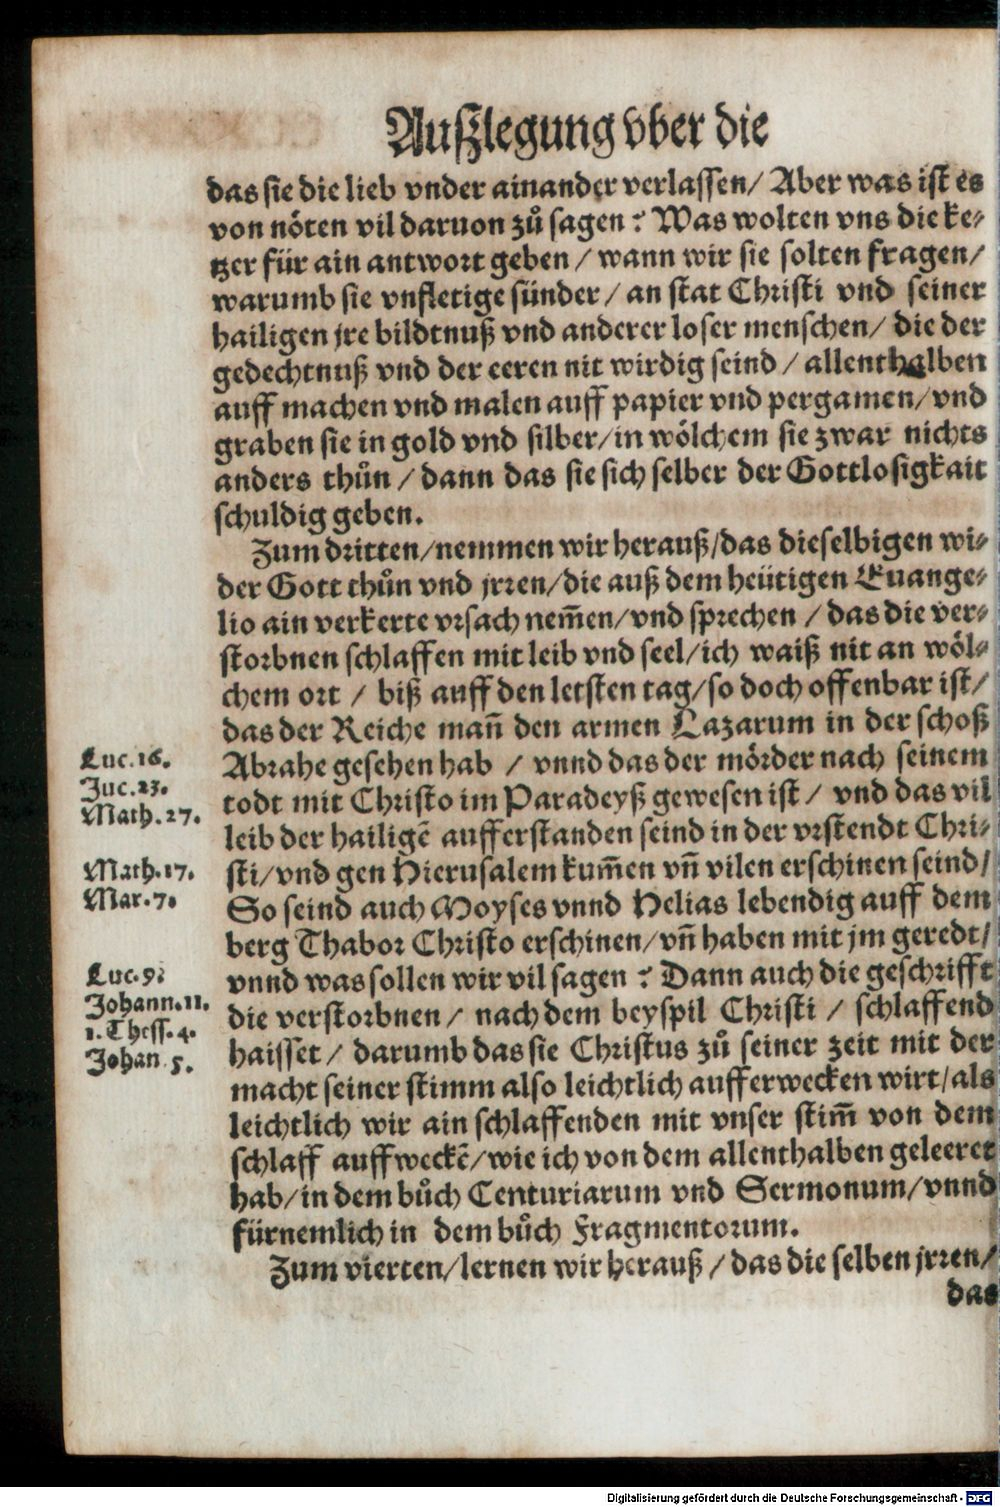 Außlegung vber die
das sie die lieb vnder ainander verlassen/ Aber was ist es
von nöten vil daruon zů sagen? Was wolten vns die ke-
tzer für ain antwort geben/ wann wir sie solten fragen/
warumb sie vnfletige sünder/ an stat Christi vnd seiner
hailigen jre bildtnuß vnd anderer loser menschen/ die der
gedechtnuß vnd der eeren nit wirdig seind/ allenthalben
auff machen vnd malen auff papier vnd pergamen/ vnd
graben sie in gold vnd silber/ in wölchem sie zwar nichts
anders thůn/ dann das sie sich selber der Gottlosigkait
schuldig geben.
Zum dritten/ nemmen wir herauß/ das dieselbigen wi-
der Gott thůn vnd jrren/ die auß dem heütigen Euange-
lio ain verkerte vrsach nem̃en/ vnd sprechen/ das die ver-
storbnen schlaffen mit leib vnd seel/ ich waiß nit an wöl-
chem ort/ biß auff den letsten tag/ so doch offenbar ist/
das der Reiche mañ den armen Lazarum in der schoß
Luc. 16. Abrahe gesehen hab/ vnnd das der mörder nach seinem
Luc. 23. todt mit Christo im Paradeyß gewesen ist/ vnd das vil
Math. 27. leib der hailigẽ aufferstanden seind in der vrstendt Chri-
Math. 17. sti/ vnd gen Hierusalem kum̃en vñ vilen erschinen seind/
Mar. 7. So seind auch Moyses vnnd Helias lebendig auff dem
berg Thabor Christo erschinen/ vñ haben mit jm geredt/
Luc. 9. vnnd was sollen wir vil sagen? Dann auch die geschrifft
Johann. 11. die verstorbnen/ nach dem beyspil Christi/ schlaffend
1. Thess. 4. haisset/ darumb das sie Christus zů seiner zeit mit der
Johan. 5. macht seiner stimm also leichtlich aufferwecken wirt/ als
leichtlich wir ain schlaffenden mit vnser stim̃ von dem
schlaff auffweckẽ/ wie ich von dem allenthalben geleeret
hab/ in dem bůch Centuriarum vnd Sermonum/ vnnd
fürnemlich in dem bůch Fragmentorum.
Zum vierten/ lernen wir herauß/ das die selben jrren/
das
Digitalisierung gefördert durch die Deutsche Forschungsgemeinschaft - DFG